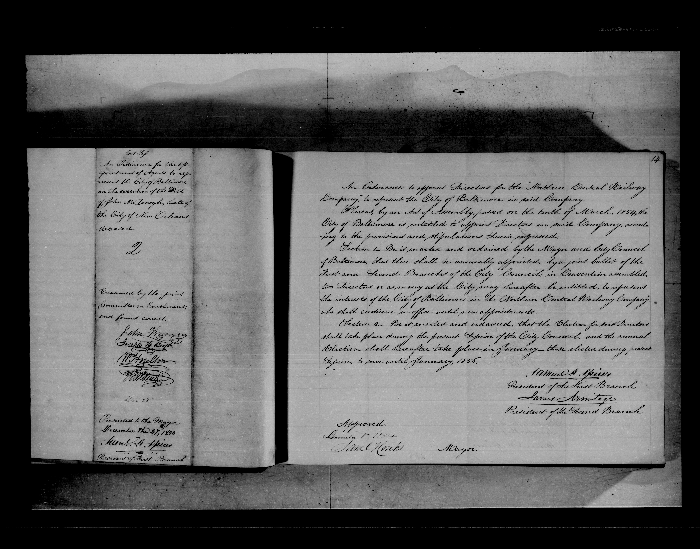 An Ordinance for the
appointment of Agents to rep
resent the City of Baltimore
in the execution of the Will
of John McDonogh, late of
the City of New Orleans
deceased.
2
Examined by the joint
committee on Enrolments
and found correct.
Presented to the Mayor
December the 27, 1854
Saml. H. Spicer
President of First Branch
14
An Ordinance to appoint Directors for the Northern Central Railway
Company, to represent the City of Baltimore in said Company.
Whereas by an Act of Assembly, passed on the tenth of March, 1854, the
City of Baltimore is entitled to appoint Directors in such Company, accord
ing to the provisions and stipulations therein expressed.
Section 1. Be it enacted and ordained by the Mayor and City Council
of Baltimore, that there shall be annually appointed, by a joint ballot of the
First and Second Branches of the City Council in Convention assembled,
two Directors or as many as the City may hereafter be entitled, to represent
the interests of the City of Baltimore in the Northern Central Railway Company
who shall continue in office until new appointments.
Section 2. Be it enacted and ordained, that the Election for said Directors
shall take place during the present Session of the City Council, and the annual
Election shall hereafter take place in January those elected during present
Session to serve until January, 1856.
Samuel H. Spicer
President of the First Branch
James Armitage
President of the Second Branch
Approved
Saml Hinks
Mayor.